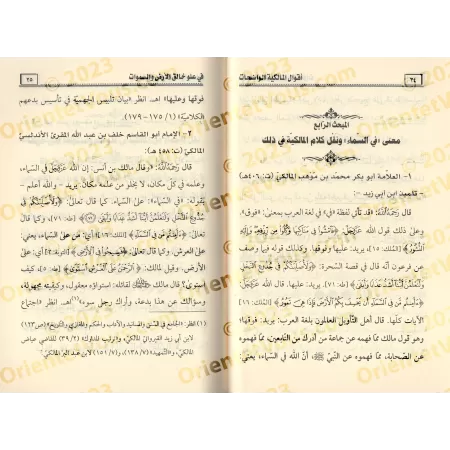 ٢٤
أقوال المالكية الواضحات
المبحث الرابع
معنى «في السماء» ونقل كلام المالكية في ذلك
١- العلامة أبو بكر محمد بن موهب المالكي (ت: ٤٠٦هـ)
- تلميذ ابن أبي زيد -
قال رَحِمَهُ اللَّهُ: «قد تأتي لفظة «في» في لغة العرب بمعنى: «فوق»،
وعلى ذلك قول الله عَزَّوَجَلَّ: ﴿فَامْشُوا فِي مَنَاكِبِهَا وَكُلُوا مِن رِّزْقِهِ وَإِلَيْهِ
النُّشُورُ﴾ [الملك: ١٥]، يريد: عليها وفوقها. وكذلك قوله فيما وصف
عن فرعون أنه قال في قصة السحرة: ﴿وَلَأُصَلِّبَنَّكُمْ فِي جُذُوعِ النَّخْلِ
وَلَتَعْلَمُنَّ أَيُّنَا أَشَدُّ عَذَابًا وَأَبْقَى﴾ [طه: ٧١]، يريد: عليها، وقال الله عَزَّوَجَلَّ:
﴿أَأَمِنتُم مَّن فِي السَّمَاءِ أَن يَخْسِفَ بِكُمُ الْأَرْضَ فَإِذَا هِيَ تَمُورُ﴾ [الملك: ١٦]
الآيات كلّها. قال أهل التأويل العالمون بلغة العرب: يريد: فوقها،
وهو قول مالك مما فهمه عن جماعة من أدرك من التابعين، مما فهموه
عن الصحابة، مما فهموه عن النبي ﷺ، أنّ الله في السماء، يعني:
في علو خالق الأرض والسموات
٢٥
فوقها وعليها» اهـ. انظر «بيان تلبيس الجهمية في تأسيس بدعهم
الكلامية» (١/ ١٧٥-١٧٩)
٢- الإمام أبو القاسم خلف بن عبد الله المقرئ الأندلسي
المالكي (ت: ٤٥٨هـ)
قال رَحِمَهُ اللَّهُ: «وقال مالك بن أنس: إن الله عَزَّوَجَلَّ في السماء،
وعلمه في كل مكان، لا يخلو من علمه مكان. يريد - والله أعلم -
بقوله: في السماء: على السماء، كما قال تعالى: ﴿وَلَأُصَلِّبَنَّكُمْ فِي
جُذُوعِ النَّخْلِ وَلَتَعْلَمُنَّ أَيُّنَا أَشَدُّ عَذَابًا وَأَبْقَى﴾ [طه: ٧١]، وكما قال
تعالى: ﴿أَأَمِنتُم مَّن فِي السَّمَاءِ﴾ [الملك: ١٦] أي: من على السماء، يعني:
على العرش، وكما قال تعالى: ﴿فَسِيحُوا فِي الْأَرْضِ﴾ [التوبة: ٢] أي: على
الأرض، وقيل لمالك: ﴿الرَّحْمَٰنُ عَلَى الْعَرْشِ اسْتَوَىٰ﴾ [طه: ٥]، كيف
استوى؟ قال مالك لقائله: استواؤه معقول، وكيفيته مجهولة،
وسؤالك عن هذا بدعة، وأراك رجل سوء»(١) اهـ. انظر «اجتماع
(١) انظر: «الجامع في السنن والآداب والحكم والمغازي والتاريخ» (ص١٢٣)
لابن أبي زيد القيرواني المالكي، و«ترتيب المدارك» (٢/ ٣٩) للقاضي عياض
المالكي، و«التمهيد» (٧/ ١٣٨)، (٧/ ١٥١) لابن عبد البر المالكي.